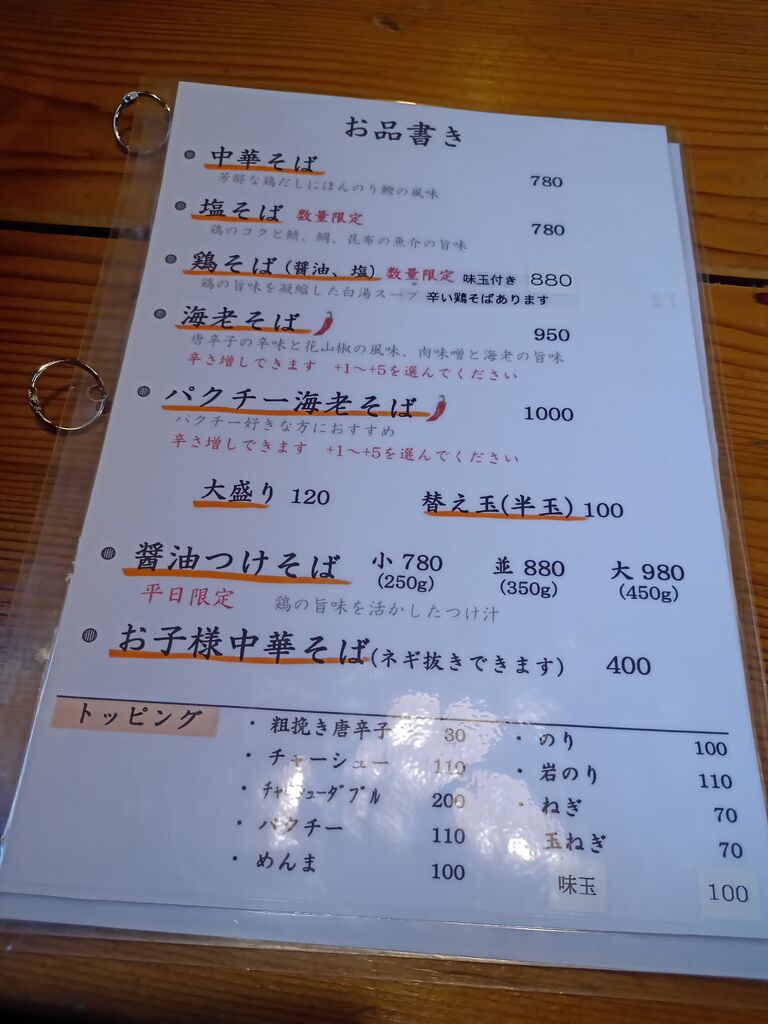 お品書き
中華そば 780
芳醇な鶏だしにほんのり鰹の風味
塩そば 数量限定 780
鶏のコクと鯖、鯛、昆布の魚介の旨味
鶏そば(醤油、塩) 数量限定 味玉付き 880
鶏の旨味を凝縮した白湯スープ 辛い鶏そばあります
海老そば 950
唐辛子の辛味と花山椒の風味、肉味噌と海老の旨味
辛さ増しできます +1〜+5を選んでください
パクチー海老そば 1000
パクチー好きな方におすすめ
辛さ増しできます +1〜+5を選んでください
大盛り 120 替え玉(半玉) 100
醤油つけそば 小 780 並 880 大 980
(250g) (350g) (450g)
平日限定 鶏の旨味を活かしたつけ汁
お子様中華そば(ネギ抜きできます) 400
トッピング
・粗挽き唐辛子 30
・チャーシュー 110
・チャーシューダブル 200
・パクチー 110
・めんま 100
・のり 100
・岩のり 110
・ねぎ 70
玉ねぎ 70
味玉 100